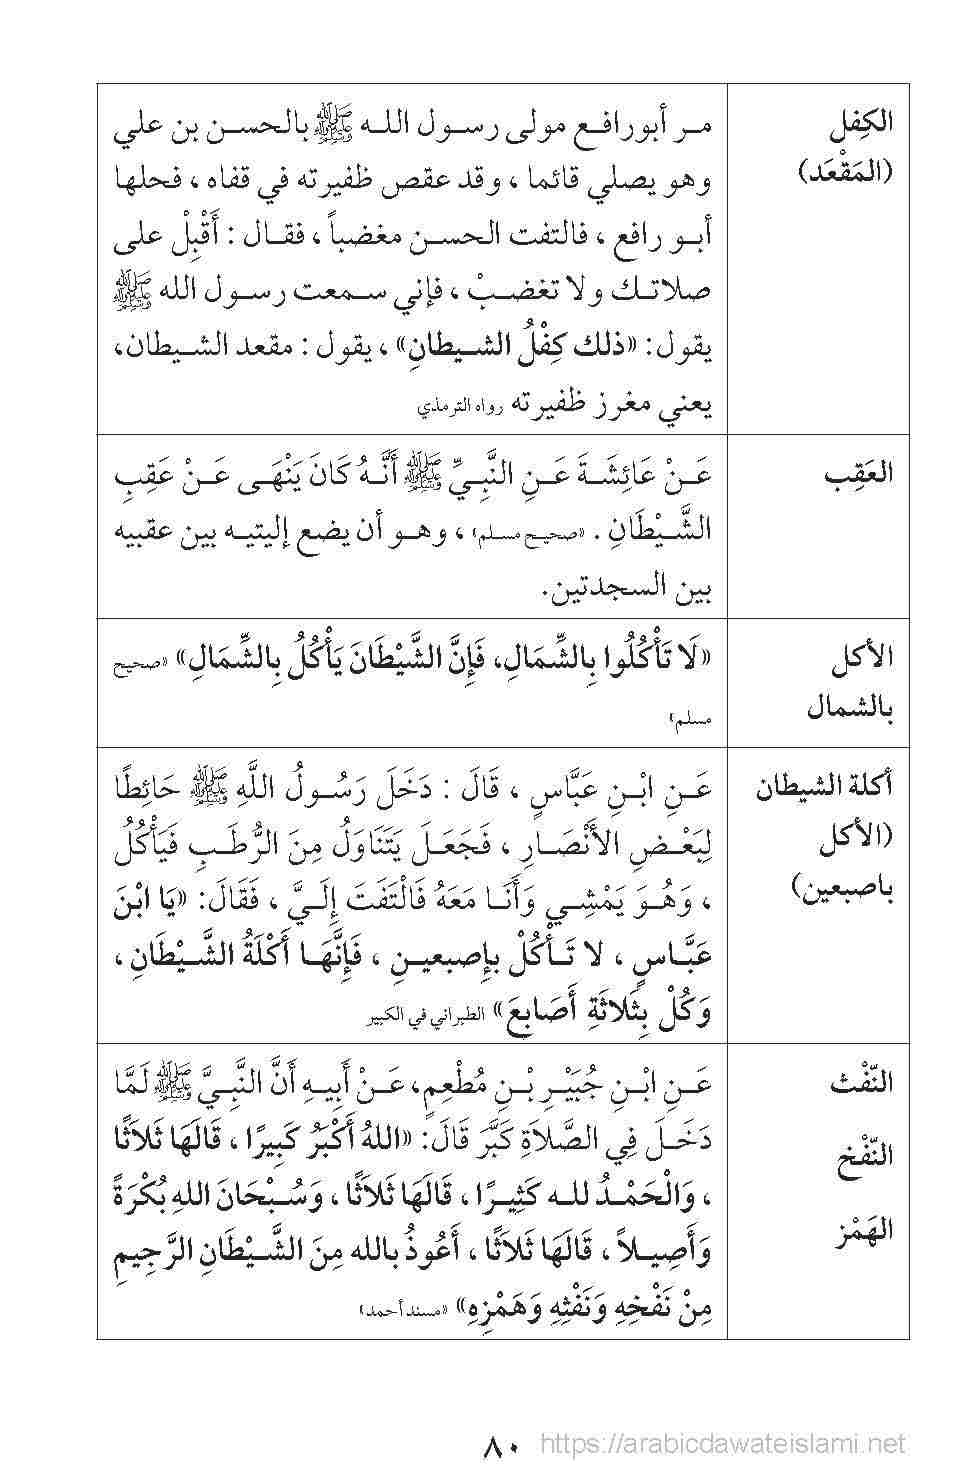 الكِفل
(المَقْعَد)
مـر أبورافـع مولى رسـول اللـه ﷺ بالحسـن بن علي
وهو يصلي قائما ، وقد عقص ظفيرته في قفاه ، فحلها
أبـو رافع ، فالتفت الحسـن مغضباً ، فقـال : أَقْبِلْ على
صلاتـك ولا تغضـبْ ، فإني سـمعت رسـول الله ﷺ
يقول: «ذلك كِفْلُ الشـيطانِ» ، يقول : مقعد الشيطان،
يعني مغرز ظفيرته رواه الترمذي
العَقِب
عَـنْ عَائِشَـةَ عَـنِ النَّبِـيِّ ﷺ أَنَّـهُ كَانَ يَنْهَـى عَـنْ عَقِبِ
الشَّـيْطَانِ . «صحيـح مسـلم» ، وهـو أن يضع إليتيـه بين عقبيه
بين السجدتين.
الأكل
بالشمال
«لَا تَأْكُلُوا بِالشِّمَالِ، فَإِنَّ الشَّيْطَانَ يَأْكُلُ بِالشِّمَالِ» «صحيح
مسلم»
أكلة الشيطان
(الأكل
باصبعين)
عَـنِ ابْـنِ عَبَّاسٍ ، قَالَ : دَخَلَ رَسُـولُ اللَّهِ ﷺ حَائِطًا
لِبَعْـضِ الأَنْصَـارِ ، فَجَعَـلَ يَتَنَاوَلُ مِنَ الرُّطَـبِ فَيَأْكُلُ
، وَهُـوَ يَمْشِـي وَأَنَـا مَعَهُ فَالْتَفَتَ إِلَـيَّ ، فَقَالَ: «يَا ابْنَ
عَبَّـاسٍ ، لا تَـأْكُلْ بإِصبعيـنِ ، فَإِنَّهَـا أَكْلَةُ الشَّـيْطَانِ ،
وَكُلْ بِثَلاثَةِ أَصَابِعَ» الطبراني في الكبير
النّفْث
النّفْخ
الهَمْز
عَـنِ ابْـنِ جُبَيْـرِ بْـنِ مُطْعِمٍ، عَـنْ أَبِيـهِ أَنَّ النَّبِـيَّ ﷺ لَمَّا
دَخَـلَ فِي الصَّلاَةِ كَبَّرَ قَالَ: «اللهُ أَكْبَرُ كَبِيرًا ، قَالَهَا ثَلاَثًا
، وَالْحَمْـدُ للـه كَثِيـرًا ، قَالَهَا ثَلاَثًا ، وَسُـبْحَانَ اللهِ بُكْرَةً
وَأَصِيـلاً ، قَالَهَا ثَلاَثًا ، أَعُوذُ بالله مِنَ الشَّـيْطَانِ الرَّجِيمِ
مِنْ نَفْخِهِ وَنَفْثِهِ وَهَمْزِهِ» «مسند أحمد»
٨٠
https://arabicdawateislami.net